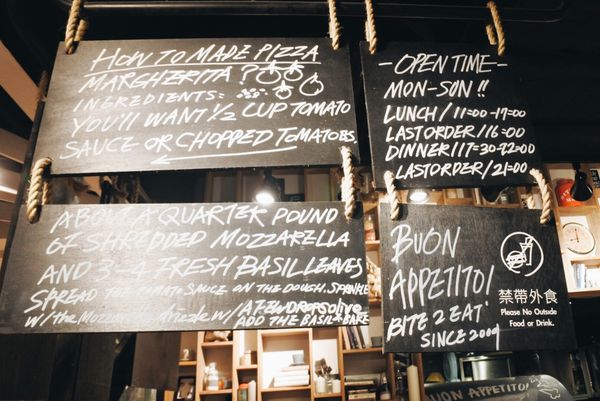 HOW TO MADE PIZZA
MARGHERITA
INGREDIENTS:
YOU'LL WANT 1/2 CUP TOMATO
SAUCE OR CHOPPED TOMATOES.
ABOUT A QUARTER POUND
OF SHREDDED MOZZARELLA
AND 3-4 FRESH BASIL LEAVES
SPREAD THE TOMATO SAUCE ON THE DOUGH, SPRINKLE
w/ the Mozzarella drizzle w/ A FEW DROPS olive
ADD THE BASIL * BAKE
-OPEN TIME-
MON-SUN!!
LUNCH/11:00-17:00
LAST ORDER/16:00
DINNER/17:30-22:00
LAST ORDER/21:00
BUON
APPETITO!
BITE 2 EAT
SINCE 2009
禁帶外食
Please No Outside
Food or Drink.
BUON APPETITO!